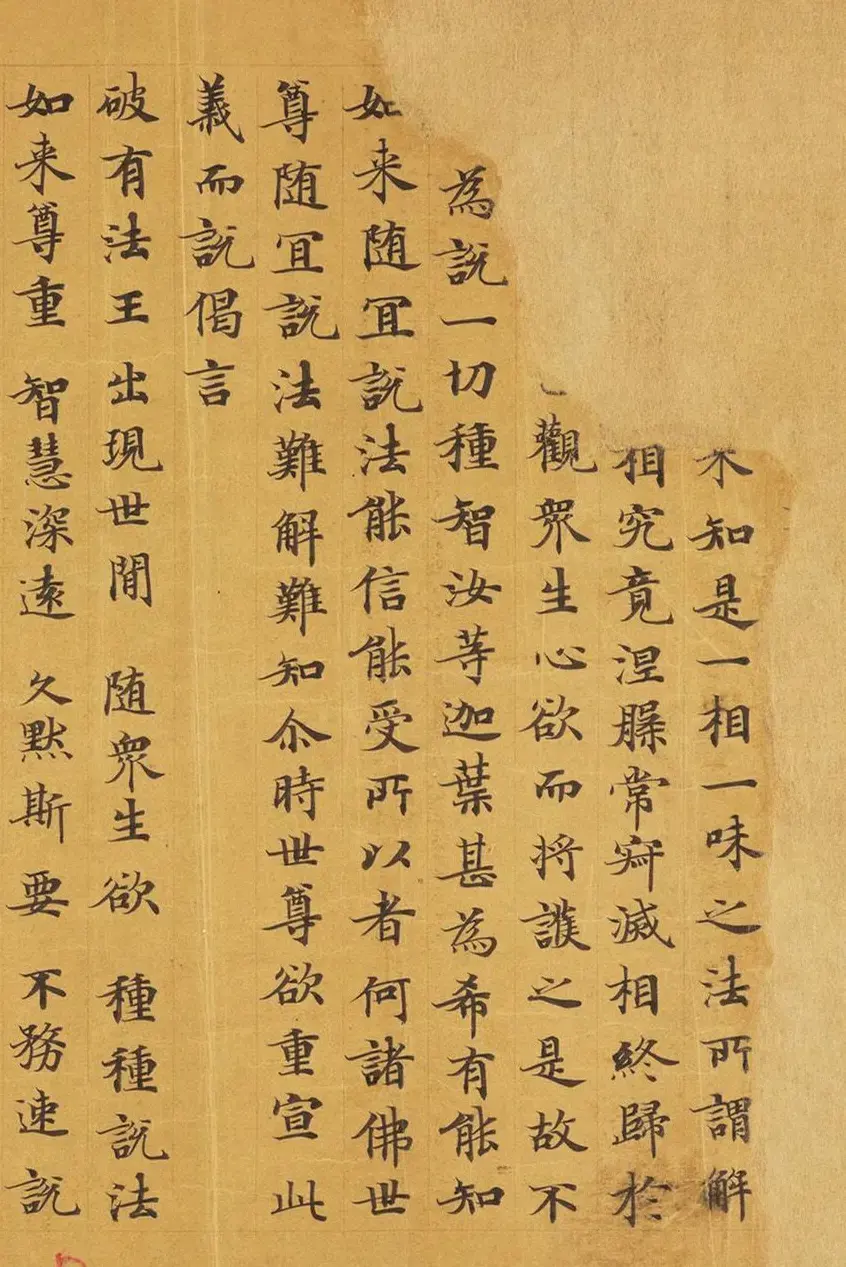 不知是一相一味之法所謂解
相究竟涅槃常寂滅相終歸於
觀衆生心欲而将護之是故不
為說一切種智汝等迦葉甚為希有能知
如来随冝說法能信能受所以者何諸佛世
尊随冝說法難解難知尒時世尊欲重宣此
義而說偈言
破有法王 出現世間 随衆生欲 種種說法
如来尊重 智慧深遠 久黙斯要 不務速說